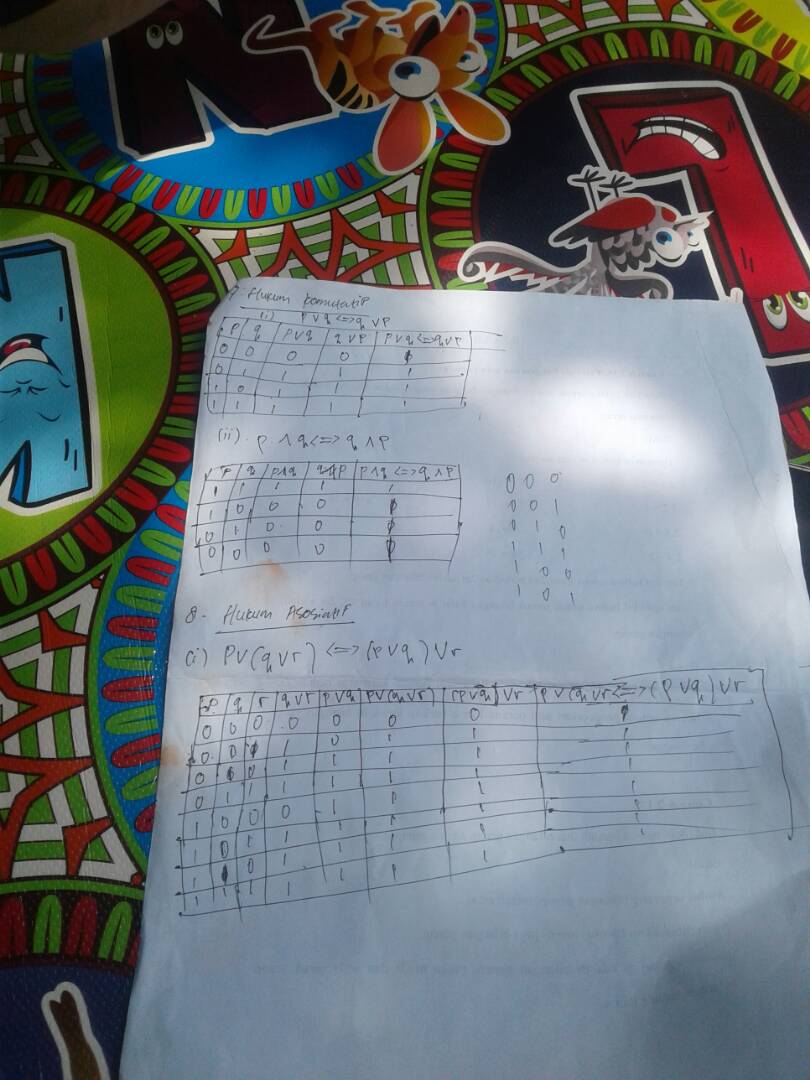 7. Hukum Komutatif
(i) p v q <=> q v p
p q p v q q v p p v q <=> q v p
0 0 0 0 1
0 1 1 1 1
1 0 1 1 1
1 1 1 1 1
(ii). p ∧ q <=> q ∧ p
p q p ∧ q q ∧ p p ∧ q <=> q ∧ p
1 1 1 1 1
1 0 0 0 1
0 1 0 0 1
0 0 0 0 1
0 0 0
0 0 1
0 1 0
1 1 1
1 0 0
1 0 1
8. Hukum Asosiatif
(i) p v (q v r) <=> (p v q) v r
p q r q v r p v q p v (q v r) (p v q) v r p v (q v r) <=> (p v q) v r
0 0 0 0 0 0 0 1
0 0 1 1 0 1 1 1
0 1 0 1 1 1 1 1
0 1 1 1 1 1 1 1
1 0 0 0 1 1 1 1
1 0 1 1 1 1 1 1
1 1 0 1 1 1 1 1
1 1 1 1 1 1 1